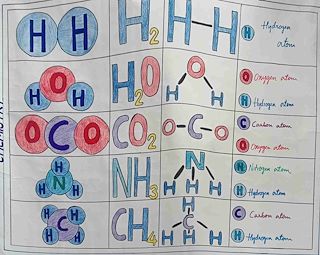 H H
H2
H H
H Hydrogen
atom
H O H
H2O
O
H H
O Oxygen atom
H Hydrogen atom
O C O
CO2
O C O
C Carbon atom
O Oxygen atom
H
N
H H
NH3
N
H H H
N Nitrogen atom
H Hydrogen atom
H H
C
H H
CH4
H
C
H H H
C Carbon atom
H Hydrogen atom